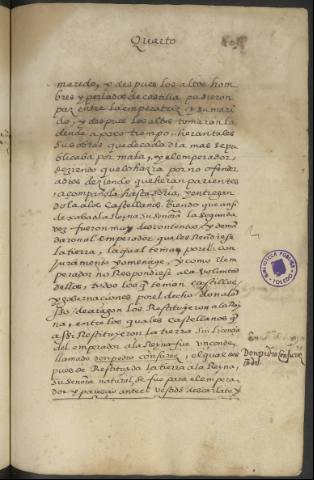 Quarto
marido, y despues los altos hom
bres y perlados de castilla pusieron
paz entre la emperatriz y su mari
do, y despues los altos tomaron la
dende a poco tiempo, heran tales
sus obras que de cada dia mas se pu
blicaba por mala, y el emperador
diziendo que lo hazia por no ofender
a dios deziendo que heran parientes
acompañola hasta soria, y entregan
dola a los castellanos. Viendo que ansi
dexaba la Reyna su señora la segunda
vez fueron muy descontentos, y deman
daron al emperador que les Rendiese
la tierra, la qual tenian por el con
juramento y omenage, y como el em
perador no Respondiese a la voluntad
dellos, todos los que tenian castillos
y gobernaciones por el dicho don alon
so de aragon los Restituyeron a la Rey
na, entre los quales castellanos que
assi Restituyeron la tierra sin licencia
del emperador a la Reyna fue un conde
llamado don pedro ansurez, el qual des
pues de Restituida la tierra a la Reyna,
su señora natural, se fue para el empera
dor y parescio ante el vestido de escarlata y
Don pedro Ansurez
BIBLIOTECA PUBLICA
TOLEDO